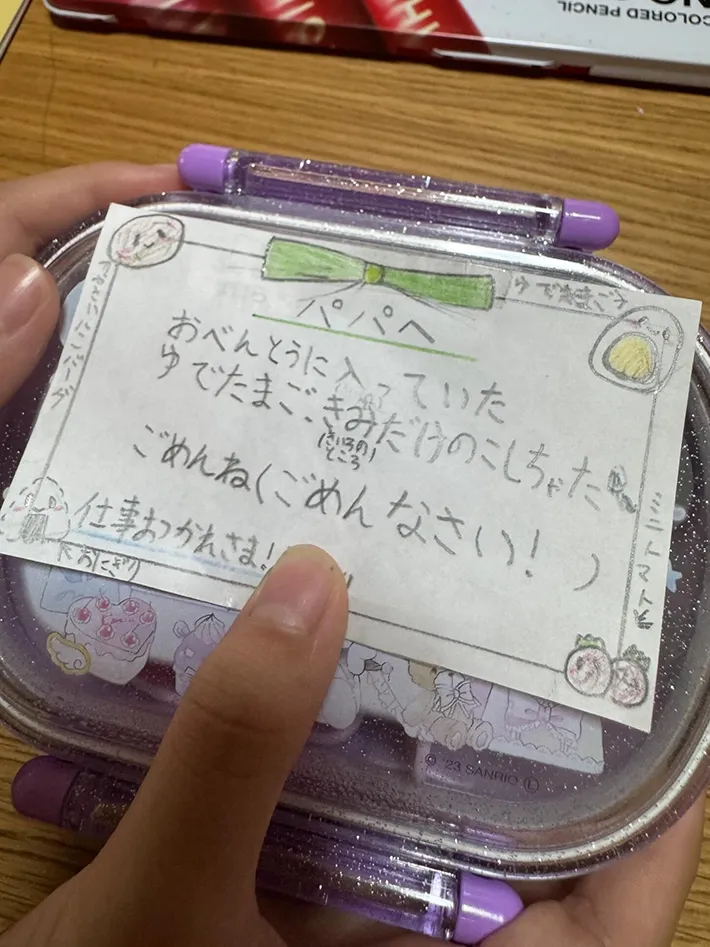 COLORED PENCIL
パパへ
ゆでたまご
おべんとうに入っていた
ゆでたまご、きみだけのこしちゃた
(きいろの
ところ)
ごめんね(ごめんなさい! )
仕事おつかれさま!
おにぎり
ミニトマト
© '23 SANRIO Ⓛ